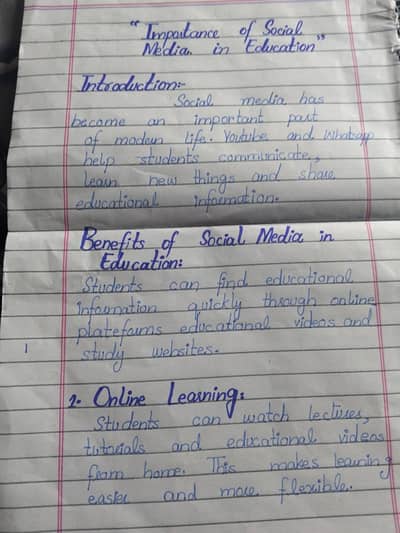 "Importance of Social
Media in Education"
Introduction:-
Social media has
become an important part
of modern life. Youtube and Whatsapp
help students communicate,
learn new things and share
educational information.
Benefits of Social Media in
Education:
Students can find educational
information quickly through online
plateforms educational videos and
study websites.
1
2. Online Learning:
Students can watch lectures,
tutorials and educational videos
from home. This makes learning
easier and more flexible.